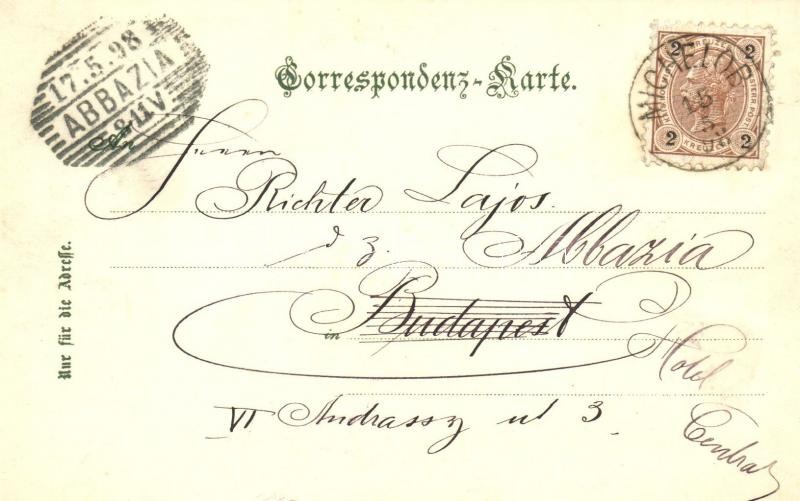 17.5.98
ABBAZIA
Correspondenz-Karte.
2 2
2 KREUZER 2
An Herrn
Richter Lajos.
d z. Abbazia
in Budapest
Hotel
VI Andrassy ut 3
Central
Nur für die Adresse.